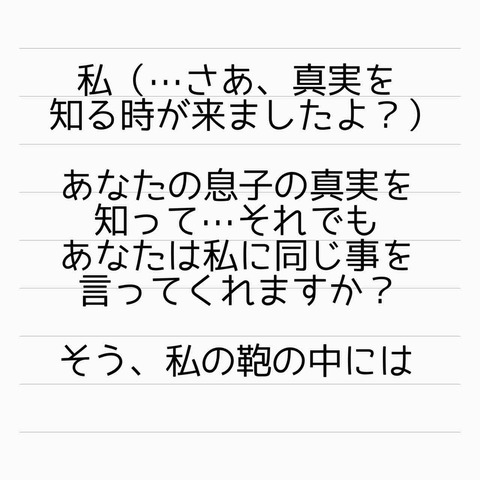 私（…さあ、真実を
知る時が来ましたよ？）
あなたの息子の真実を
知って…それでも
あなたは私に同じ事を
言ってくれますか？
そう、私の鞄の中には